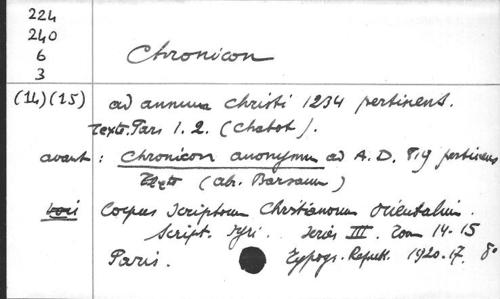 224
240
6
3
Chronicon
(14)(15)
ad annum Christi 1234 pertinens.
Texte. Pars 1. 2. (Chabot).
avant : Chronicon anonymum ad A.D. 819 pertinens
Texte (abr. Barsaum)
voir Corpus Scriptorum Christianorum Orientalium.
Script. Syri. Series III. Tom 14-15
Paris. Typogr. Republ. 1920-17. 8°